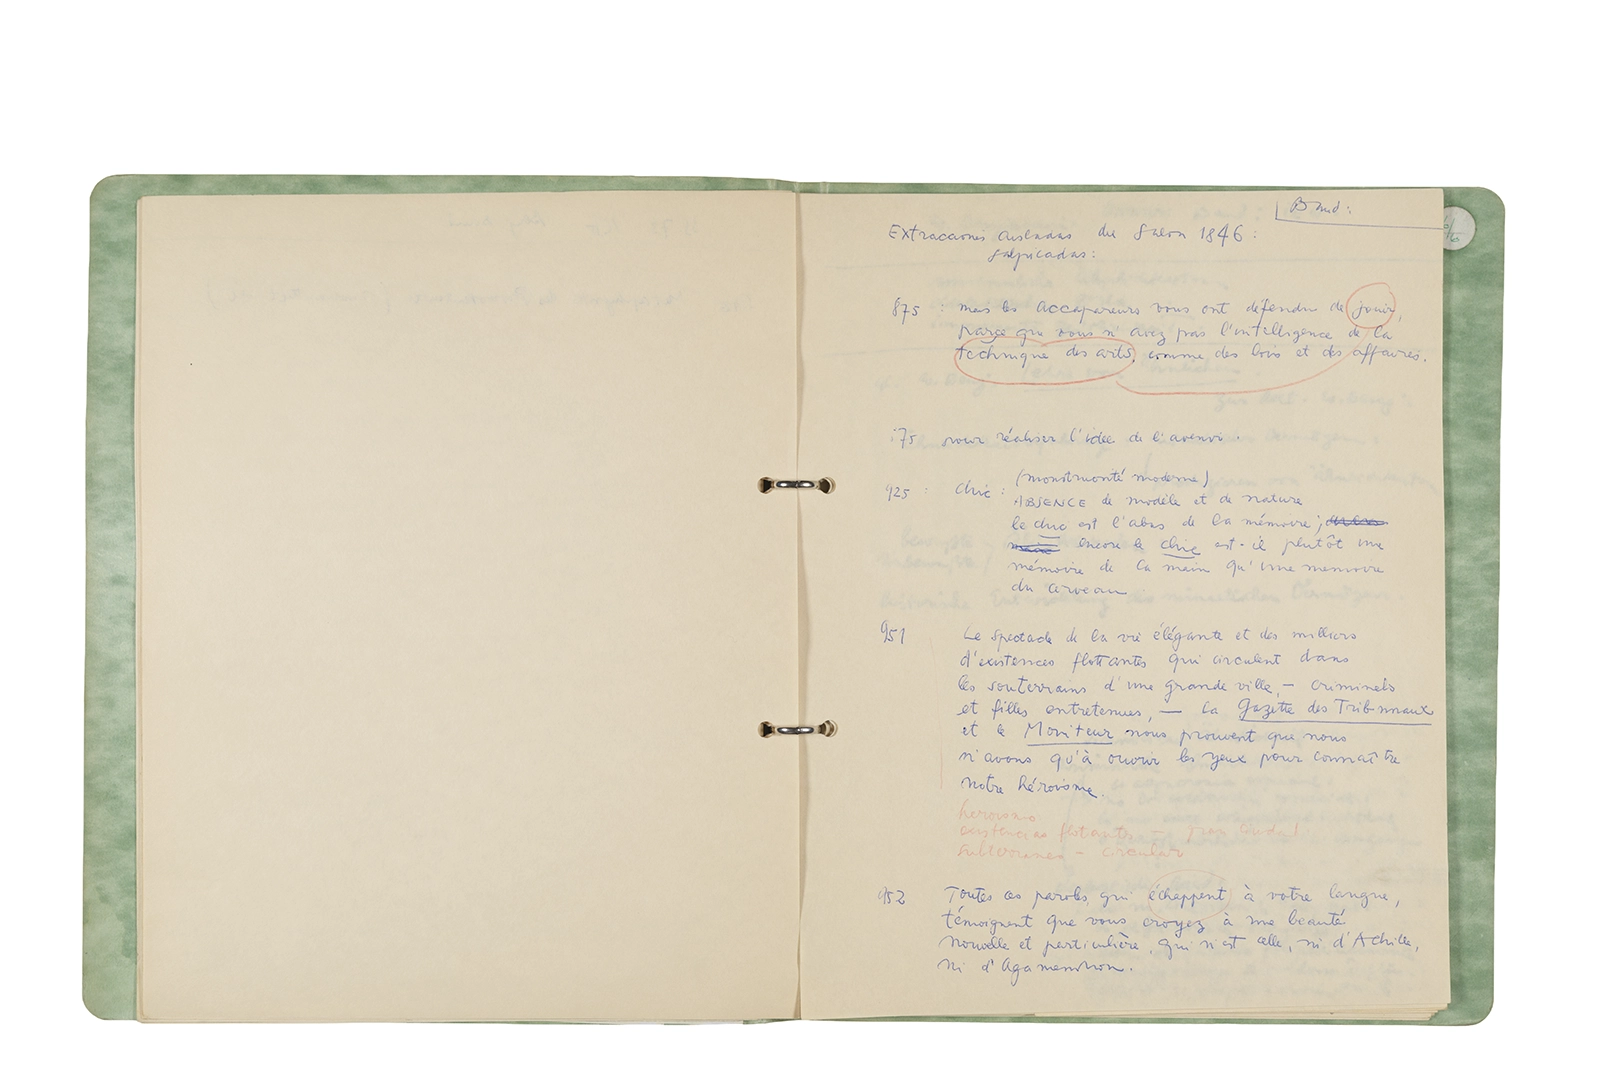 Baud:
Extracciones aisladas du Salon 1846:
salpicadas:
875 : mais les accapareurs vous ont défendu de jouir,
parce que vous n'avez pas l'intelligence de la
technique des arts, comme des lois et des affaires.
75 pour réaliser l'idée de l'avenir.
(monstruosité moderne)
925 : Chic : ABSENCE de modèle et de nature
le chic est l'abus de la mémoire;
encore le chic est-il plutôt une
mémoire de la main qu'une memoire
du cerveau
951 Le spectacle de la vie élégante et des milliers
d'existences flottantes qui circulent dans
les souterrains d'une grande ville, – criminels
et filles entretenues, — la Gazette des Tribunaux
et le Moniteur nous prouvent que nous
n'avons qu'à ouvrir les yeux pour connaître
notre héroïsme.
heroismo
existencias flotantes – gran ciudad
subterranea – circular
952 Toutes ces paroles, qui échappent à votre langue,
témoignent que vous croyez à une beauté
nouvelle et particulière, qui n'est celle, ni d'Achille,
ni d'Agamemnon.